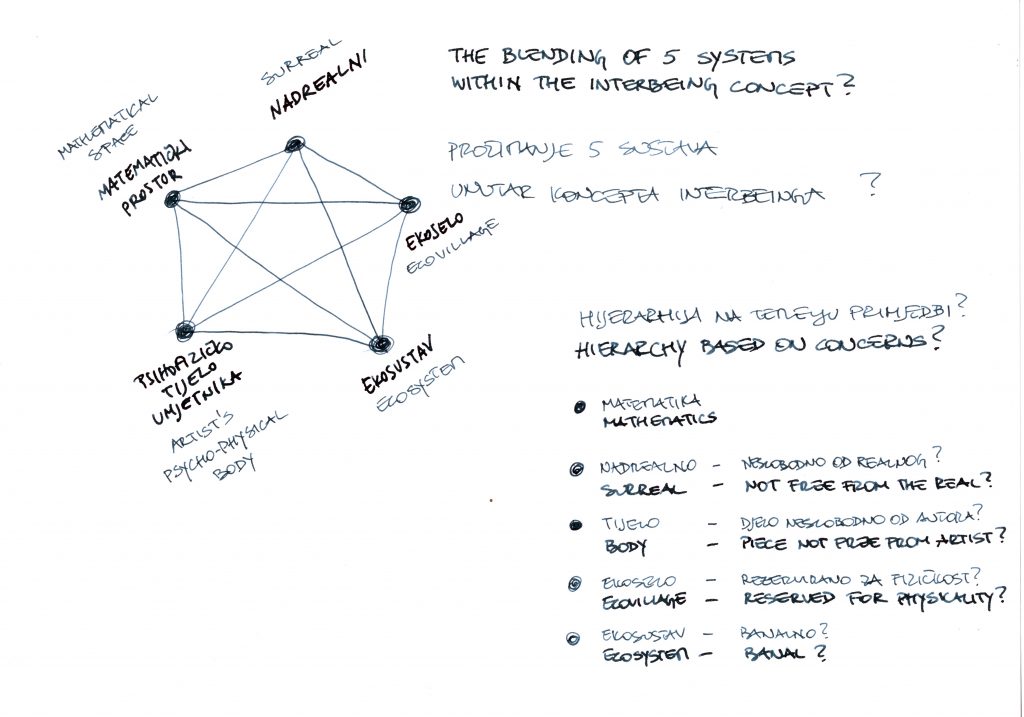 SURREAL
NADREALNI
MATHEMATICAL
SPACE
MATEMATIČKI
PROSTOR
EKOSELO
ECOVILLAGE
EKOSUSTAV
ECOSYSTEM
PSIHOFIZIČKO
TIJELO
UMJETNIKA
ARTIST'S
PSYCHO-PHYSICAL
BODY
THE BLENDING OF 5 SYSTEMS
WITHIN THE INTERBEING CONCEPT?
PROŽIMANJE 5 SUSTAVA
UNUTAR KONCEPTA INTERBEINGA ?
HIJERARHIJA NA TEMELJU PRIMJEDBI?
HIERARCHY BASED ON CONCERNS?
MATEMATIKA
MATHEMATICS
NADREALNO – NESLOBODNO OD REALNOG?
SURREAL – NOT FREE FROM THE REAL?
TIJELO – DJELO NESLOBODNO OD AUTORA?
BODY – PIECE NOT FREE FROM ARTIST?
EKOSELO – REZERVIRANO ZA FIZIČKOST?
ECOVILLAGE – RESERVED FOR PHYSICALITY?
EKOSUSTAV – BANALNO?
ECOSYSTEM – BANAL?